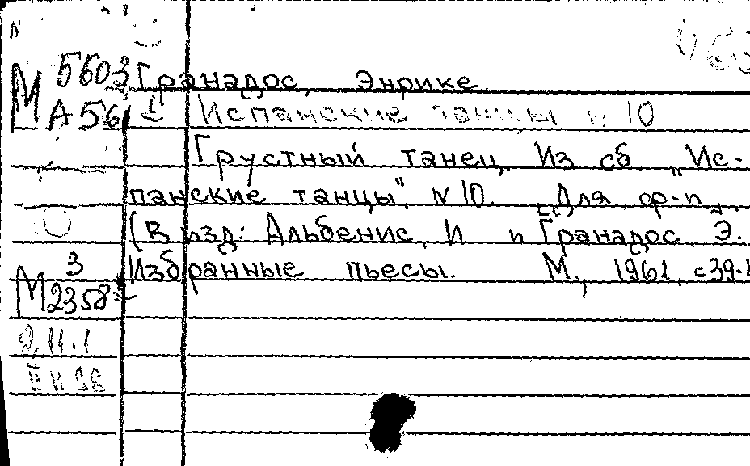 М 5603 Гранадос, Энрике
А 561 Испанские танцы n 10
Грустный танец. Из сб „Ис-
панские танцы", N 10. Для ф-п.
(В изд: Альбенис, И и Гранадос Э.
3 Избранные пьесы. М., 1961, с 39-
М 2358